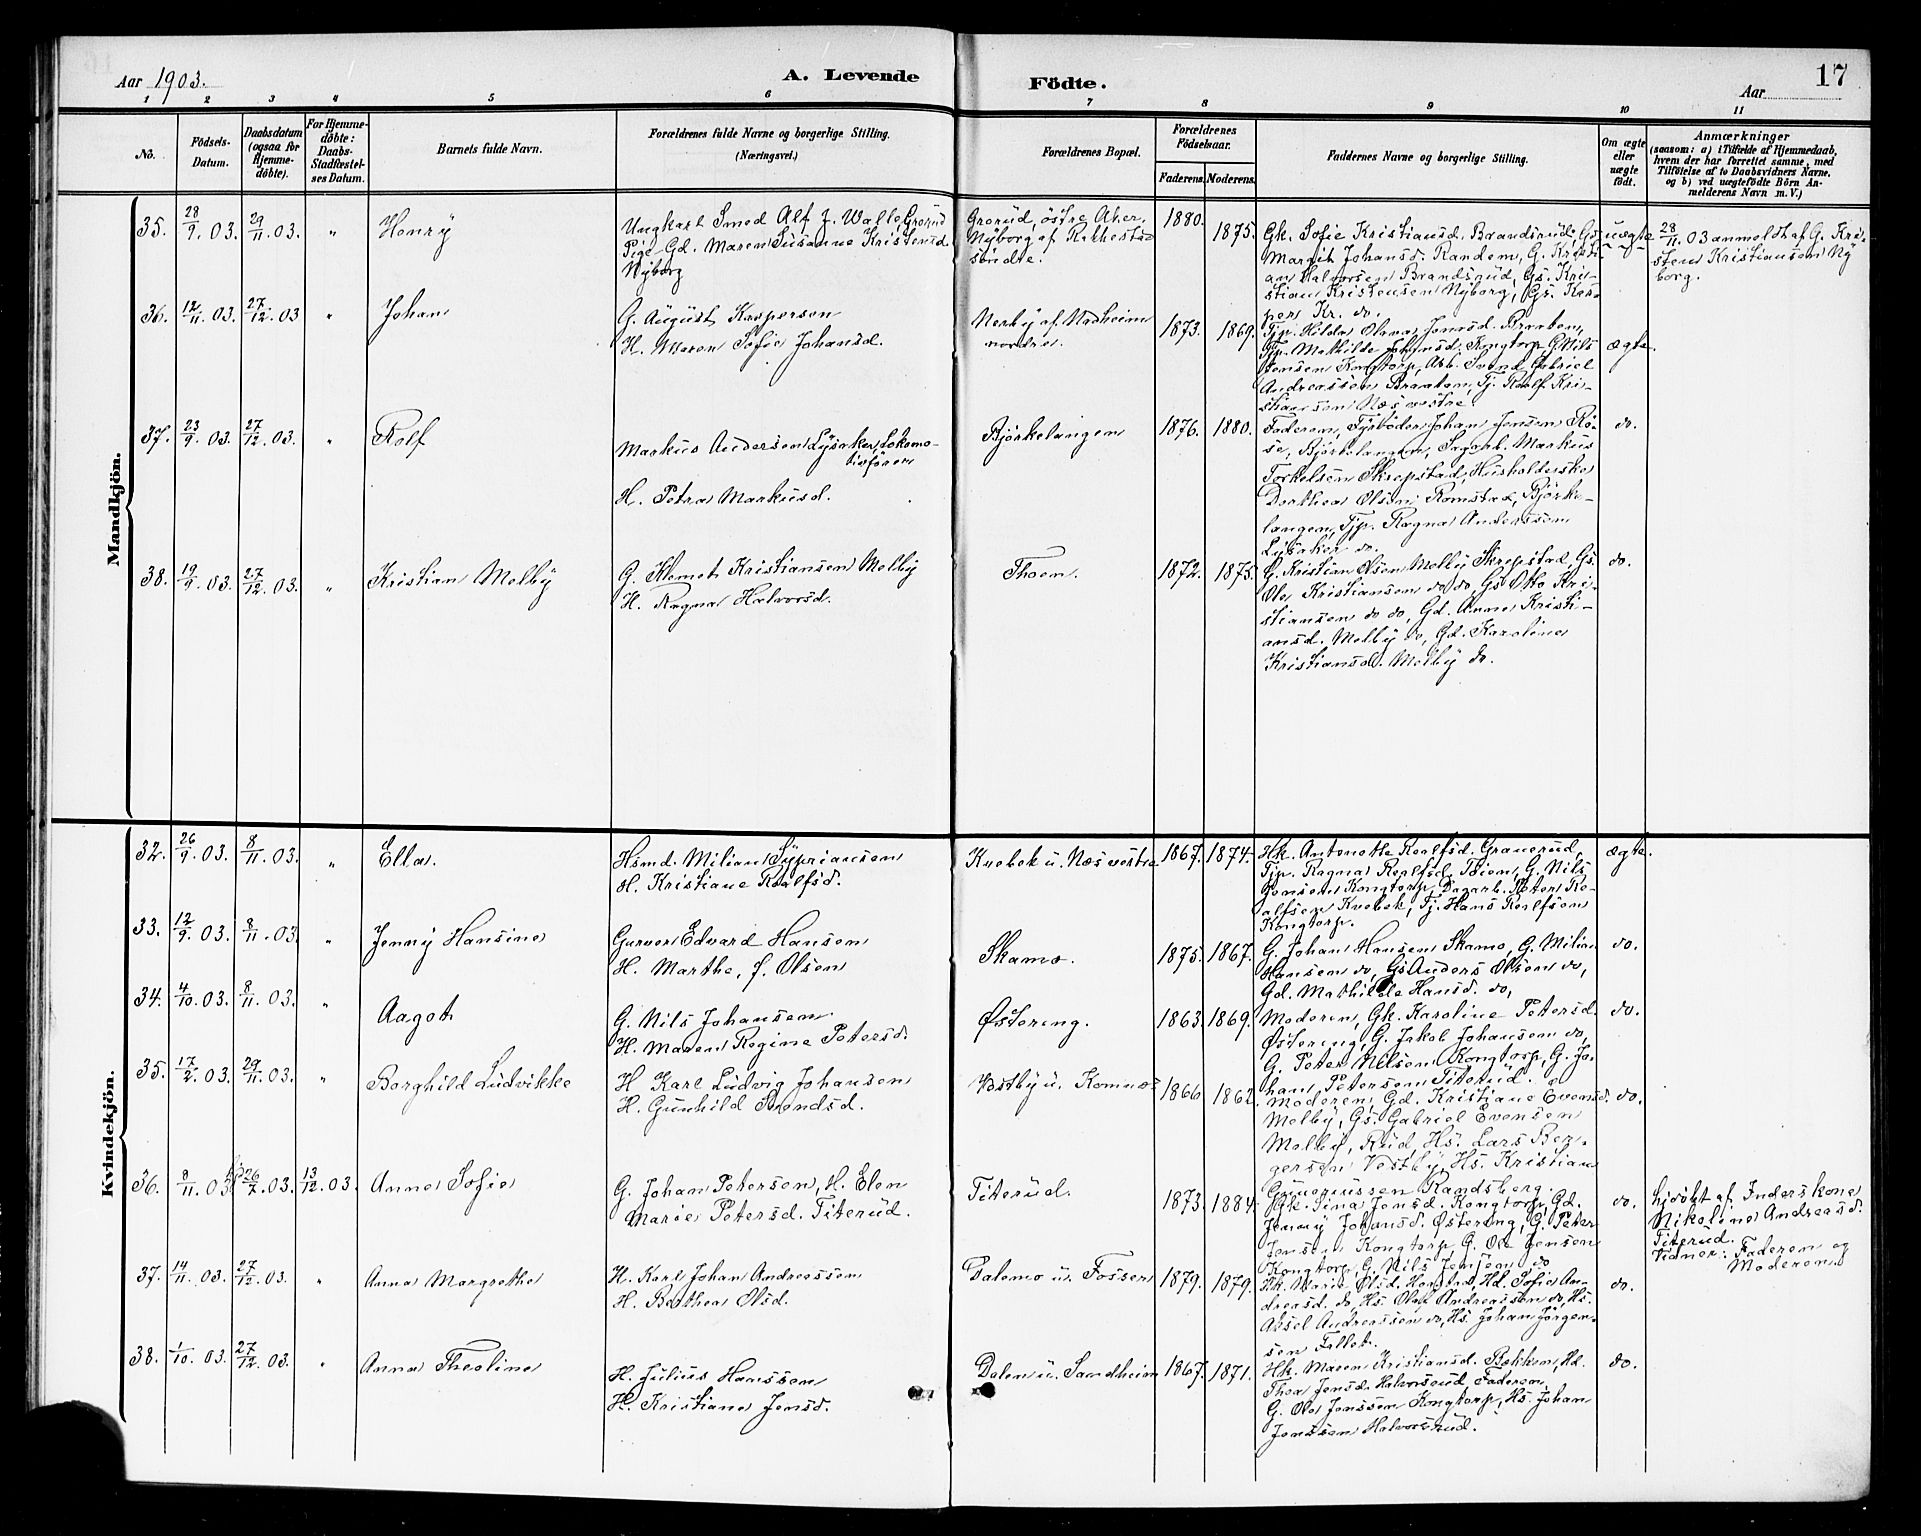 Aar 1903.
A. Levende
Födte.
Aar
17
1 2 3 4 5 6 7 8 9 10 11
No.
Födsels-
Datum.
Daabsdatum
(ogsaa for
Hjemme-
döbte).
For Hjemme-
döbte:
Daabs-
Stadfæstel-
ses Datum.
Barnets fulde Navn.
Forældrenes fulde Navne og borgerlige Stilling.
(Næringsvei.)
Forældrenes Bopæl.
Forældrenes
Födselsaar.
Faderens.
Moderens.
Faddernes Navne og borgerlige Stilling.
Om ægte
eller
uægte
födt.
Anmærkninger
(saasom: a) i Tilfælde af Hjemmedaab,
hvem der har forrettet samme, med
Tilföielse af to Daabsvidners Navne,
og b) ved uægtefödte Börn An-
melderens Navn m. V.)
Mandkjön.
35. 28/9. 03. 29/11. 03. " Henry
Ungkarl Smed Alf J. Walle Grorud
Pige Gd. Maren Susanne Kristensd.
Nyborg
Grorud, östre Aker,
Nyborg af Rakkestad
söndre.
1880. 1875.
Gk. Sofie Kristiansd. Brandsrud, Gs.
Margit Johansd. Randem, G. Kristi-
an Halvorsen Brandsrud, Gs. Kri-
stian Kristensen Nyborg, Gs. Kas-
per Kr. do.
uægte
28/11. 03 anmeldt af G. Kri-
sten Kristiansen Ny-
borg.
36. 12/11. 03. 27/12. 03 " Johan
G. August Kaspersen
H. Maren Sofie Johansd.
Nerby af Nadheim
nordre.
1873. 1869.
Tjp. Hilda Olava Jensd. Braaten,
Tjp. Mathilde Johansd. Kongtorp, G. Nils
Jensen Kongtorp, Arb. Svend Gabriel
Andreassen Braaten, Tj. Roalf Kri-
stiansen Næs vestre.
ægte.
37. 23/9. 03. 27/12. 03. " Rolf
Markus Andersen Lysaker, Lokomo-
tivförer
H. Petra Markusd.
Björkelangen
1876. 1880.
Faderen, Fyrböder Johan Jensen Rö-
se, Björkelangen, Sagarb. Markus
Torkelsen Skrepstad, Husholderske
Dorthea Olsen Romstad, Björke-
langen, Tjp. Ragna Anderssen
Lysaker do.
do.
38. 19/9. 03. 27/12. 03. " Kristian Melby
G. Klemet Kristiansen Melby
H. Ragna Halvorsd.
Thoen.
1872. 1875.
G. Kristian Olsen Melby Skrepstad, Gs.
Ole Kristiansen do do, Gs. Otto Kri-
stiansen do do, Gd. Anne Kristi-
ansd. Melby do, Gd. Karoline
Kristiansd. Melby do.
do.
Kvindekjön.
32. 26/9. 03. 8/11. 03. " Ella.
Hsmd. Milian Syprianssen
H. Kristiane Roalfsd.
Kvebek u. Næs vestre
1867. 1874.
Hk. Antonette Roalfsd. Granerud,
Tjp. Ragna Roalfsd. Toien, G. Nils
Jensen Kongtorp, Dagarb. Peter Ro-
alfsen Kvebek, Tj. Hans Roalfsen
Kongtorp.
ægte.
33. 12/9. 03. 8/11. 03. " Jenny Hansine
Garver Edvard Hansen
H. Marthe, f. Olsen
Skamo.
1875. 1867.
G. Johan Hansen Skamo, G. Milian
Hansen do, Gs. Anders Olsen do,
Gd. Mathilde Hansd. do,
do.
34. 4/10. 03. 8/11. 03. " Aagot
G. Nils Johansen
H. Maren Regine Petersd.
Østereng.
1863. 1869.
Moderen, Gk. Karoline Petersd.
Østereng, G. Jakob Johansen do,
G. Peter Nilsen Kongtorp, G. Jo-
han Petersen Titerud.
do.
35. 17/2. 03. 29/11. 03. " Borghild Ludvikke
H. Karl Ludvig Johansen
H. Gunhild Svendsd.
Vestby u. Komnæs
1866 1862.
Moderen, Gd. Kristiane Evensd.
Melby, Gs. Gabriel Evensen
Melby, Rud, Hs. Lars Ber-
gersen Vestby, Hs. Kristian
Gunerussen Randsberg.
do.
36. 8/11. 03. 26/7. 03. 13/12. 03. Anna Sofie
G. Johan Petersen, H. Elen
Marie Petersd. Titerud.
Titerud.
1873. 1884.
Gk. Lina Jensd. Kongtorp, Gd.
Jenny Johansd. Østereng, G. Peter
Jensen Kongtorp, G. Ole Jensen
Kongtorp, G. Nils Jensen do
do.
hjdöbt af Inderskone
Nikoline Andreasd.
Titerud.
Vidner: Faderen og
Moderen.
37. 14/11. 03. 27/12. 03. " Anna Margrethe
H. Karl Johan Andreassen
H. Berthea Olsd.
Dalemo u. Fossen
1879. 1879.
Hk. Marie Olsd. Hogstad, Hd. Sofie An-
dreasd. do, Hs. Olaf Andreassen do, Hs.
Aksel Andreassen do, Hs. Johan Jörgen-
sen Fallet.
do.
38. 1/10. 03. 27/12. 03. " Anna Theoline
H. Julius Hanssen
H. Kristiane Jensd.
Dalen u. Sandheim
1867. 1871.
Hk. Maren Kristiansd. Bekken, Hd.
Thea Jensd. Halvorsrud, Faderen,
G. Ole Jenssen Kongtorp, Hs. Johan
Jenssen Halvorsrud.
do.